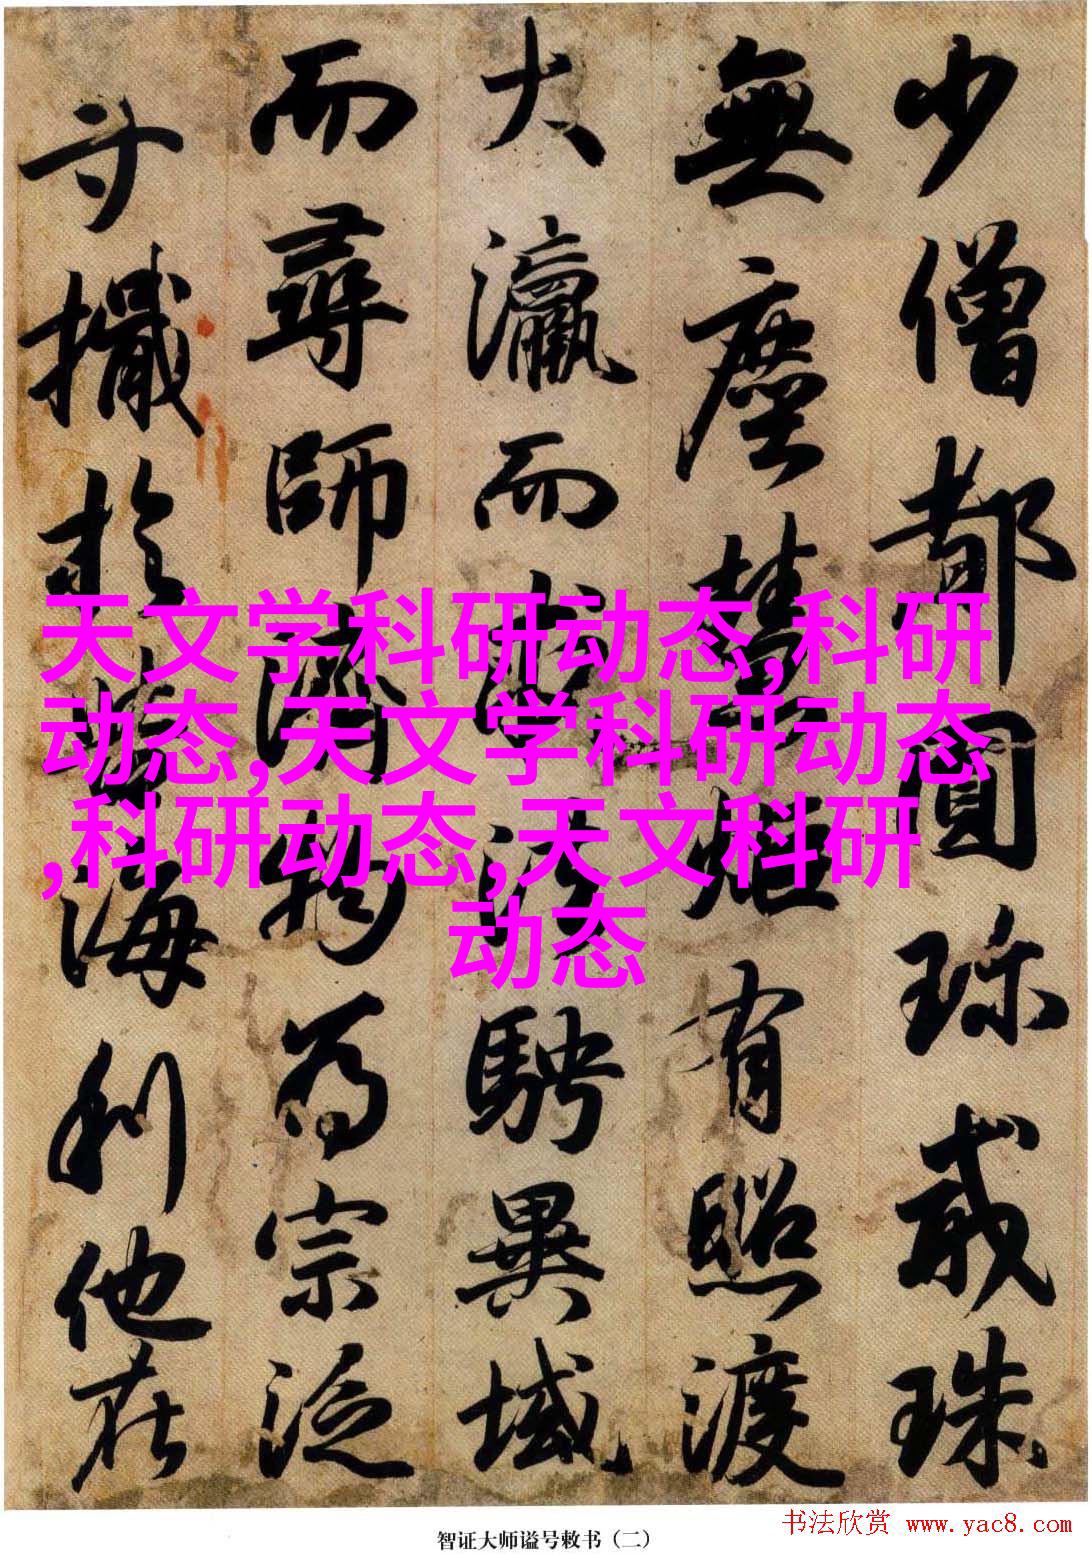 少僧都圓珎戒珠
無塵慧炬有照渡
大瀛而騁異域
而尋師濟物為宗泛
寸檝於海利他在
天文学科研动态,科研
动态,天文学科研动态
,科研动态,天文科研
动态
智证大师谥号敕书（二）
书法欣赏 www.yac8.com